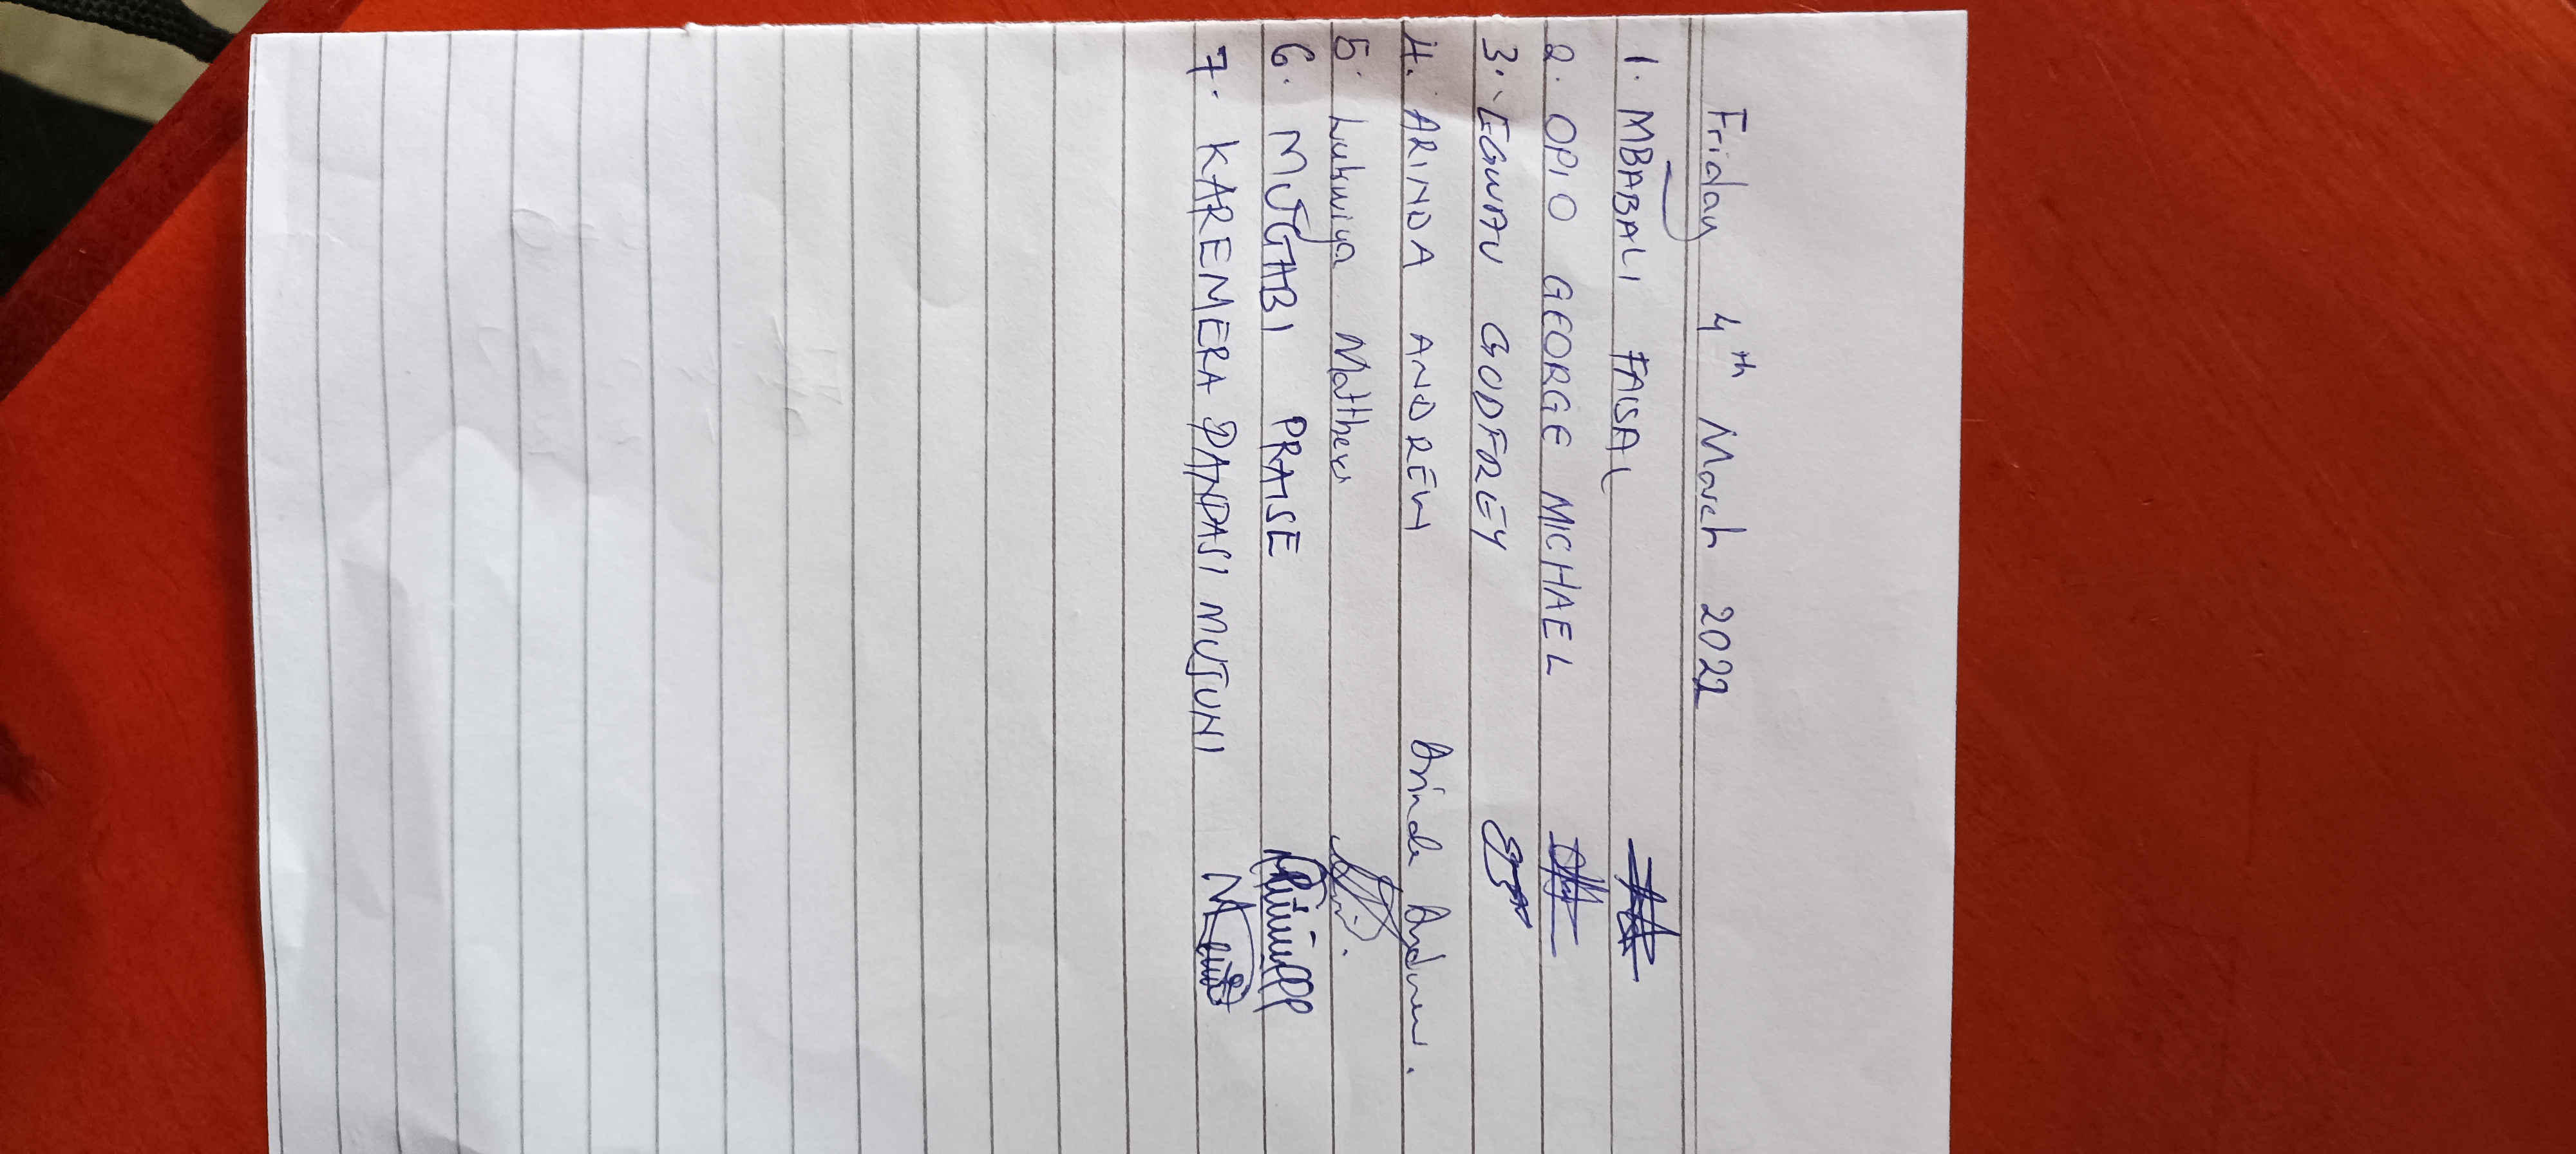 Friday 4th March 2022
1. MBABALI FAISAL
2. OPIO GEORGE MICHAEL
3. EGWAU GODFREY
4. ARINDA ANDREW Arinda Andrew.
5. Lukwiya Mathew
6. MUGABI PRAISE
7. KAREMERA DANDASI MUJUNI